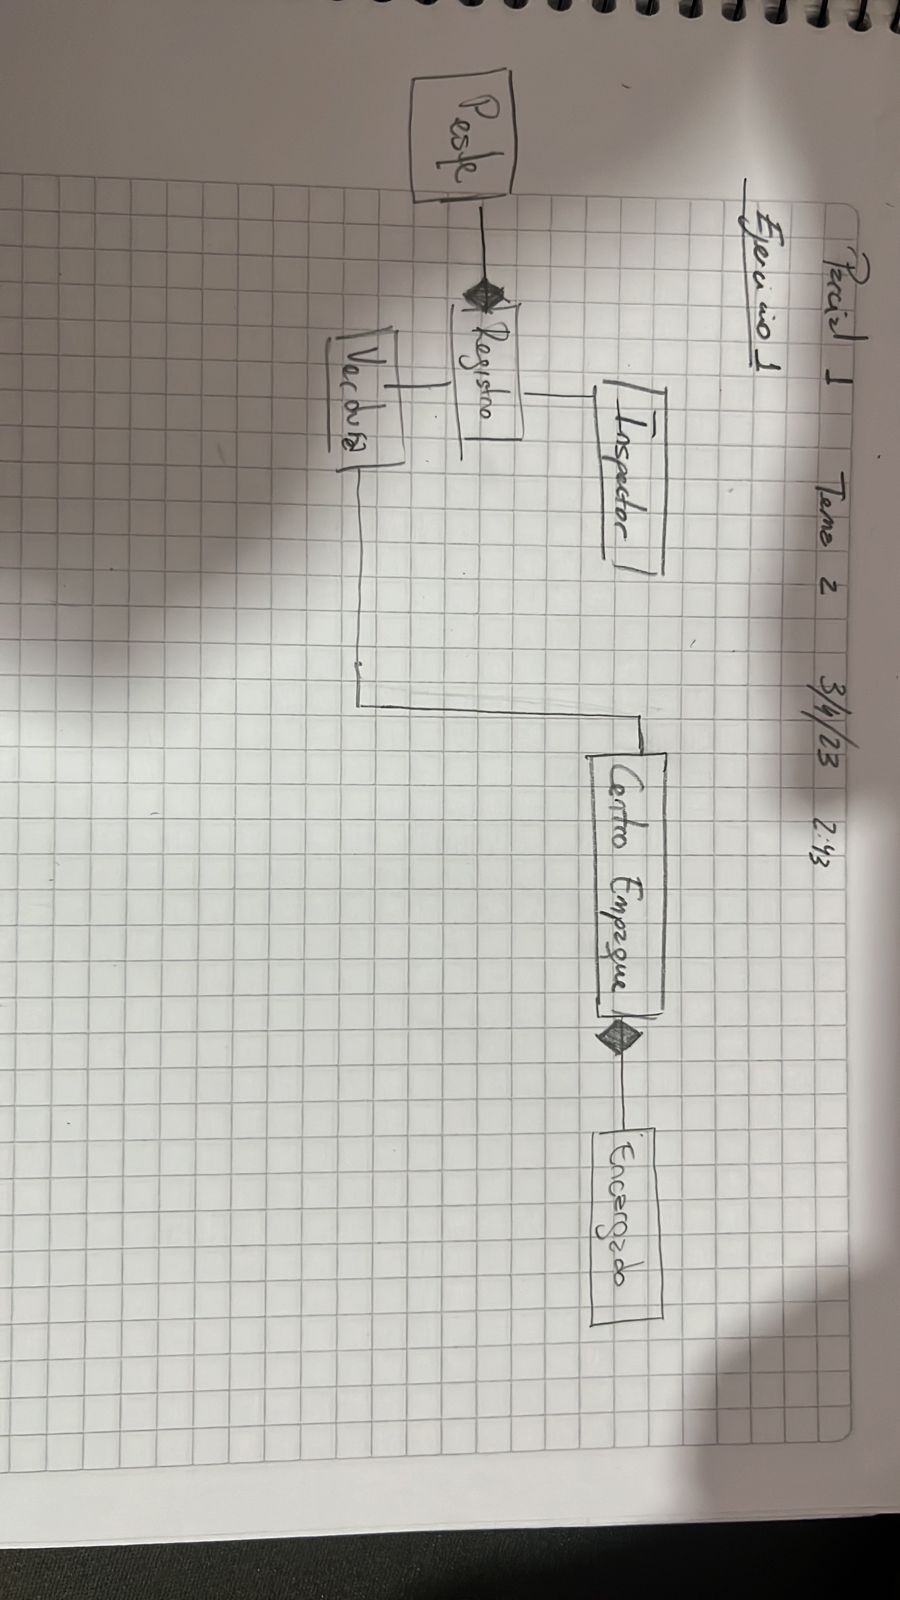 Parcial 1 Tema 2 3/4/23 2:43
Ejercicio 1
Inspector
Centro Empaque
Encargado
Peste
Registro
Verdura